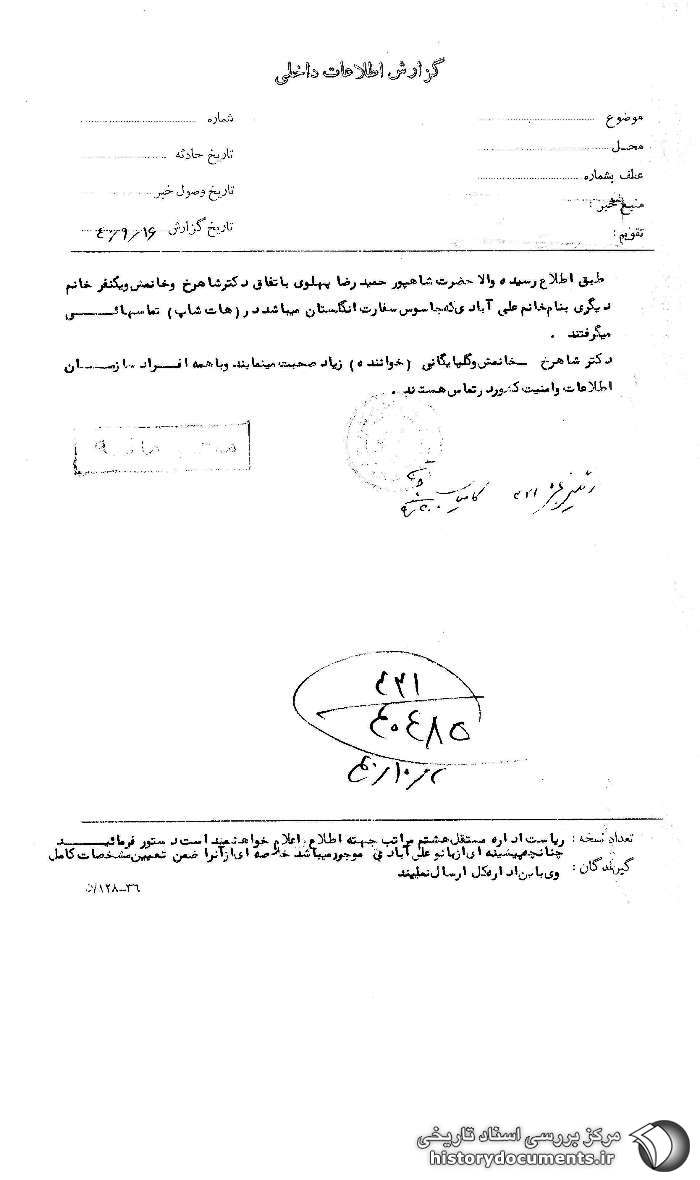 گزارش اطلاعات داخلی
موضوع
شماره
محل
تاریخ حادثه
عطف بشماره
تاریخ وصول خبر
منبع خبر :
تاریخ گزارش ۴۰/۹/۱۶
تقویم :
طبق اطلاع رسیده والا حضرت شاهپور حمید رضا پهلوی باتفاق دکتر شاهرخ وخانمش ویکنفر خانم
دیگری بنام خانم علی آبادی که جاسوس سفارت انگلستان میباشد در (هات شاپ) تماسهائی
میگرفتند .
دکتر شاهرخ خانمش وگلپایگانی (خواننده) زیاد صحبت مینمایند وباهمه افراد سازمان
اطلاعات وامنیت کشور در تماس هستند .
۳۲۱
۳۲۱
۴۰۴۸۵
۴۰/۱۰/۲
تعداد نسخه : ریاست اداره مستقل هشتم مراتب جهته اطلاع اعلام خواهشمند است دستور فرمائید
چنانچه پیشینه ای از بانو علی آبادی موجود میباشد خلاصه ای از آنرا ضمن تعیین مشخصات کامل
گیرندگان : وی باین اداره کل ارسال نمایند
۳۶-۱۲۸/ن
مرکز بررسی اسناد تاریخی
historydocuments.ir